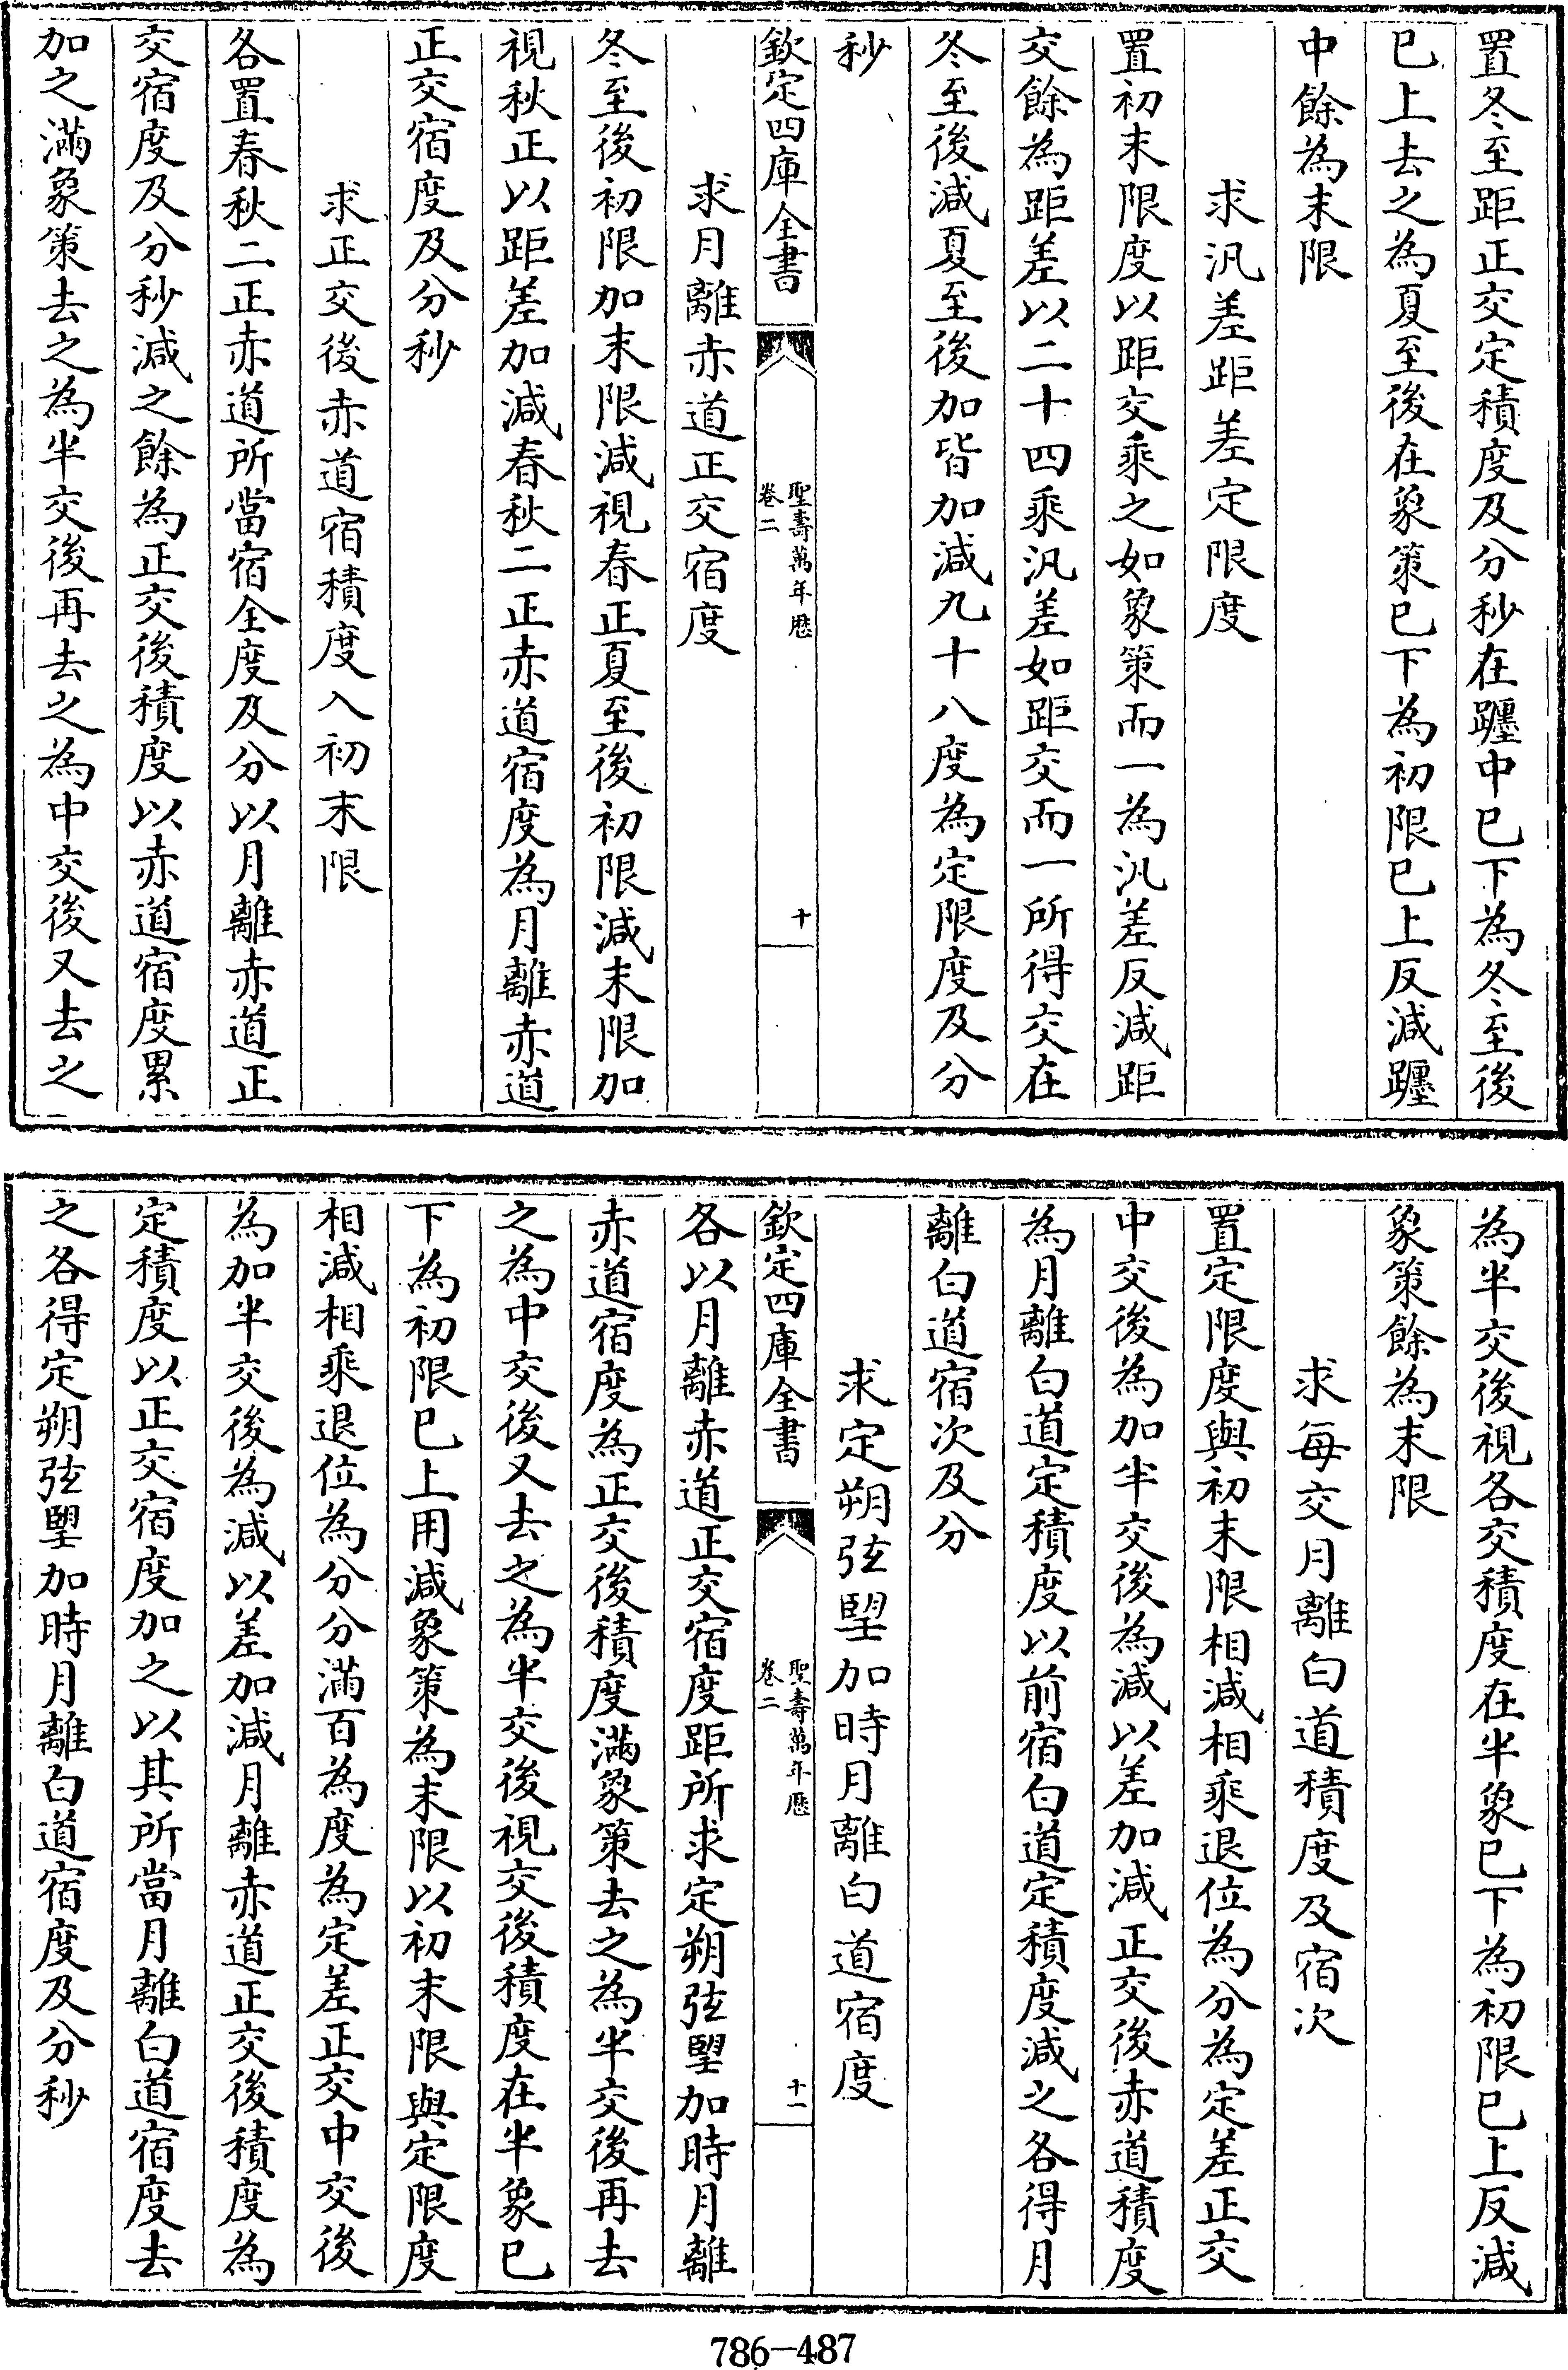 置冬至距正交定積度及分秒在躔中已下為冬至後
已上去之為夏至後在象策已下為初限已上反減躔
中餘為末限
求汎差距差定限度
置初末限度以距交乘之如象策而一為汎差反減距
交餘為距差以二十四乘汎差如距交而一所得交在
冬至後減夏至後加皆加減九十八度為定限度及分
秒
欽定四庫全書
聖壽萬年歷
卷二
十
求月離赤道正交宿度
冬至後初限加末限減視春正夏至後初限減末限加
視秋正以距差加減春秋二正赤道宿度為月離赤道
正交宿度及分秒
求正交後赤道宿積度入初末限
各置春秋二正赤道所當宿全度及分以月離赤道正
交宿度及分秒減之餘為正交後積度以赤道宿度累
加之滿象策去之為半交後再去之為中交後又去之
為半交後視各交積度在半象已下為初限已上反減
象策餘為末限
求每交月離白道積度及宿次
置定限度與初末限相減相乘退位為分為定差正交
中交後為加半交後為減以差加減正交後赤道積度
為月離白道定積度以前宿白道定積度減之各得月
離白道宿次及分
求定朔弦朢加時月離白道宿度
欽定四庫全書
聖壽萬年歷
卷二
十一
各以月離赤道正交宿度距所求定朔弦朢加時月離
赤道宿度為正交後積度滿象策去之為半交後再去
之為中交後又去之為半交後視交後積度在半象已
下為初限已上用減象策為末限以初末限與定限度
相減相乘退位為分分滿百為度為定差正交中交後
為加半交後為減以差加減月離赤道正交後積度為
定積度以正交宿度加之以其所當月離白道宿度去
之各得定朔弦朢加時月離白道宿度及分秒
786-487